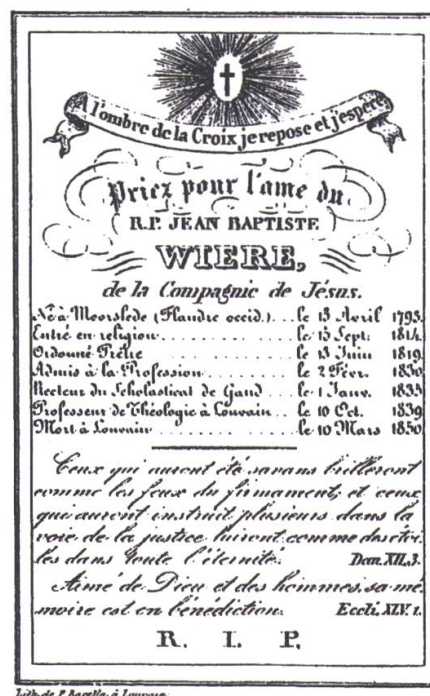 A l'ombre de la Croix je repose et j'espère.
Priez pour l'ame du
R.P. JEAN BAPTISTE
WIERE,
de la Compagnie de Jésus.
Né à Moorslede (Flandre occid.)... le 13 Avril 1793.
Entré en religion........... le 13 Sept. 1814.
Ordonné Prêtre ........... le 13 Juin 1819.
Admis à la Profession........ le 2 Févr. 1830.
Recteur du Scholasticat de Gand... le 1 Janv. 1833
Professeur de Théologie à Louvain... le 10 Oct. 1839.
Mort à Louvain........... le 10 Mars 1850.
Ceux qui auront été savans brilleront
comme les feux du firmament; et ceux
qui auront instruit plusieurs dans la
voie de la justice luiront comme des étoi-
les dans toute l'éternité. Dan. XII, 3.
Aimé de Dieu et des hommes, sa mé-
moire est en bénédiction. Eccli. XLV. 1.
R. I. P.
Lith. de P. à Louvain.